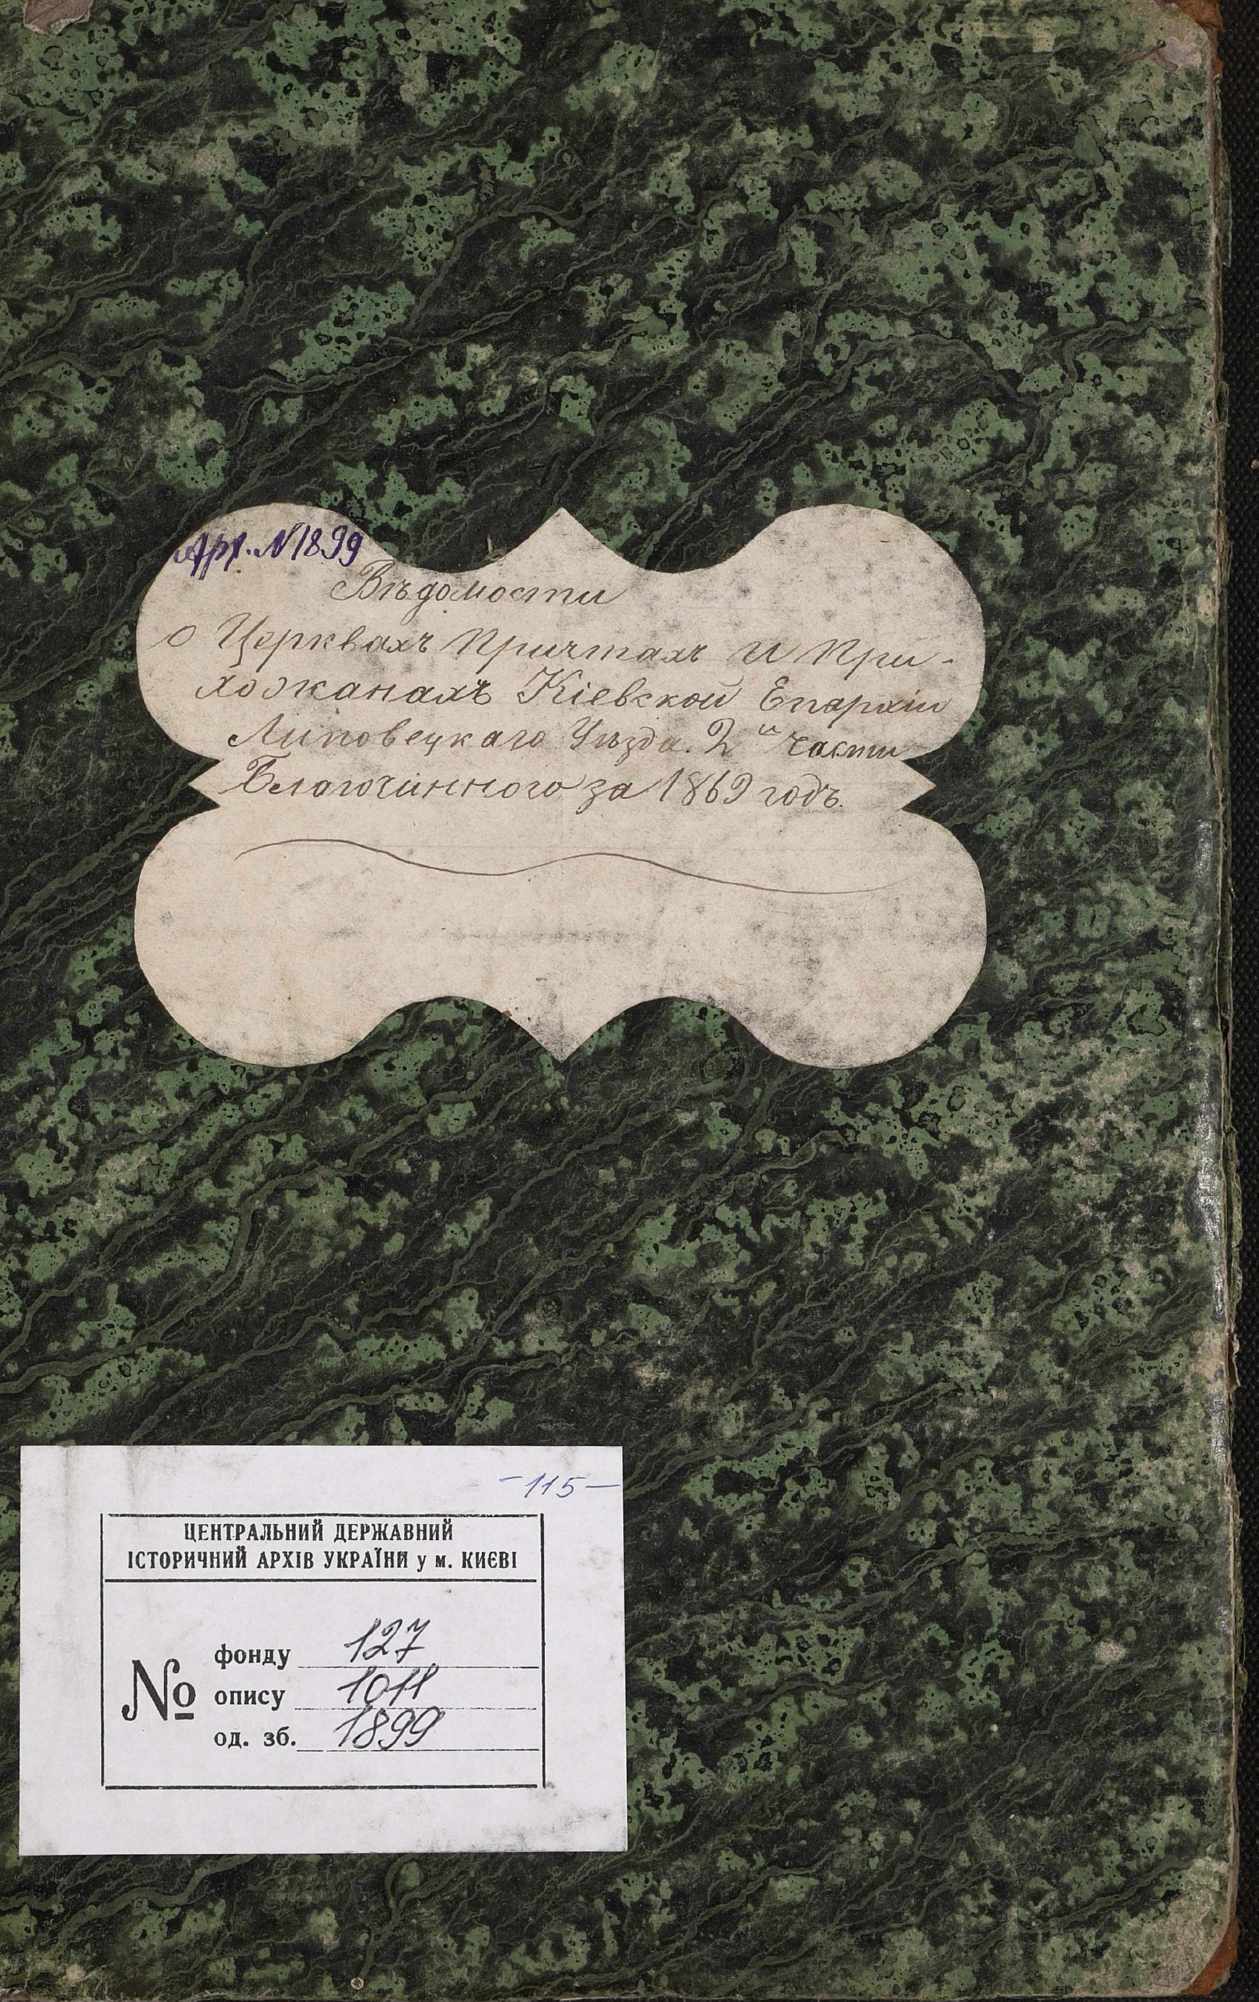 Арх. N 1899
Вѣдомости
о Церквахъ Причтахъ и При-
хожанахъ Кіевской Епархіи
Липовецкаго Уѣзда. 2й части
Благочиннаго за 1869 годъ.
-115-
ЦЕНТРАЛЬНИЙ ДЕРЖАВНИЙ
ІСТОРИЧНИЙ АРХІВ УКРАЇНИ у м. КИЄВІ
№
фонду 127
опису 1011
од. зб. 1899